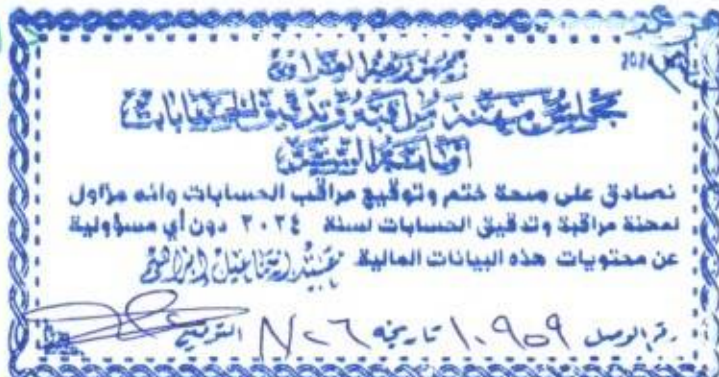 جمهورية العراق
مجلس مهنة مراقبة وتدقيق الحسابات
أمانة السر
نصادق على صحة ختم وتوقيع مراقب الحسابات وانه مزاول
لمهنة مراقبة وتدقيق الحسابات لسنة ٢٠٢٤ دون أي مسؤولية
عن محتويات هذه البيانات المالية
رقم الوصل ١٠٩٥٩ تاريخه التوقيع